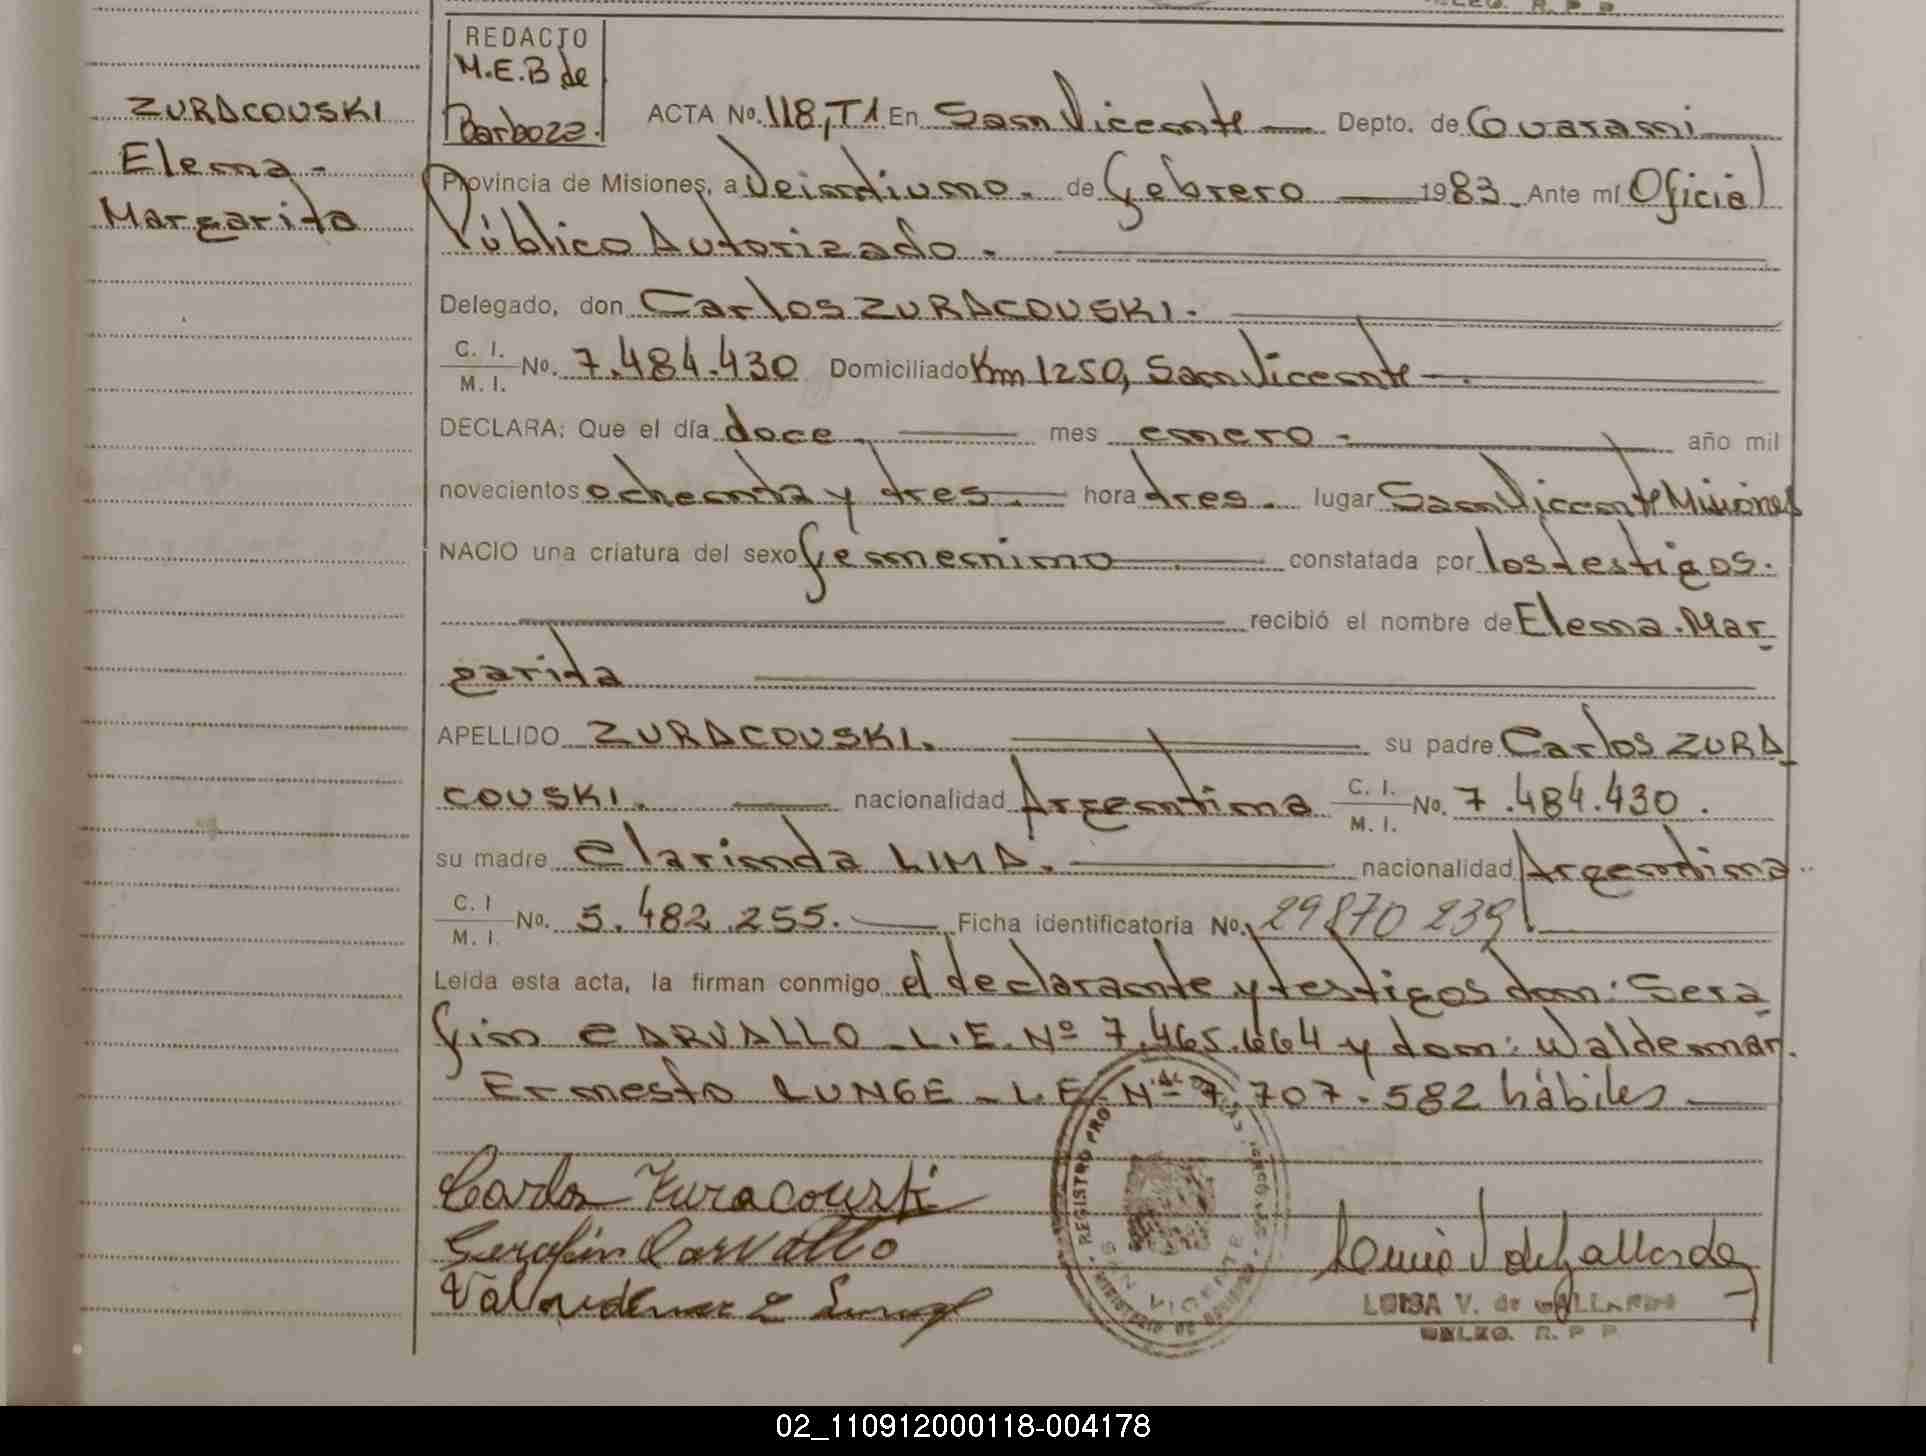 REDACTO
M.E.B de
Barboza.
ZURACOUSKI
Elena-
Margarita
ACTA No. 118, T1 En San Vicente Depto. de Guarani
Provincia de Misiones, a Veintiuno. de Febrero 1983. Ante mí Oficial
Público Autorizado.
Delegado, don Carlos ZURACOUSKI.
C. I.
M. I. No. 7.484.430 Domiciliado Km 1250, San Vicente
DECLARA: Que el día doce. mes enero. año mil
novecientos ochenta y tres. hora tres. lugar San Vicente Misiones
NACIO una criatura del sexo femenino constatada por los testigos.
recibió el nombre de Elena. Mar
garita
APELLIDO ZURACOUSKI. su padre Carlos ZURA
COUSKI. nacionalidad Argentina C. I. M. I. No. 7.484.430.
su madre Clarinda LIMA. nacionalidad Argentina
C. I M. I. No. 5.482.255. Ficha identificatoria No. 29870239
Leída esta acta, la firman conmigo el declarante y testigos don: Sera
fin CARVALLO - L.E. Nº 7.465.664 y don: Waldemar.
Ernesto LUNGE - L.E. Nº 7.707.582 hábiles
Carlos Zuracouski
Serafin Carvallo
REGISTRO PRO
SAN VICENTE
LUISA V. de GALLARDO
DELEG. R. P. P.
02_110912000118-004178